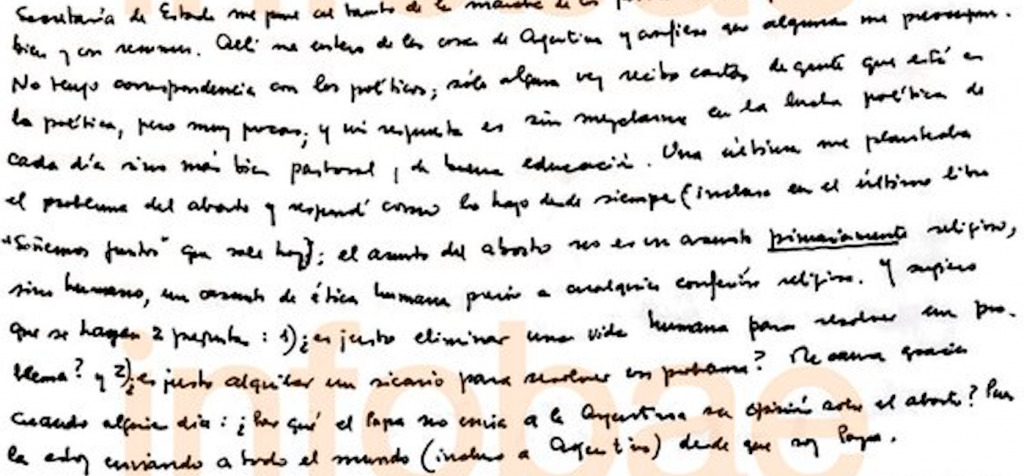 Secretaría de Estado me pone al tanto de la marcha de los
bien y con resumen. Allí me entero de las cosas de Argentina y confieso que algunas me preocupan.
No tengo correspondencia con los políticos; sólo alguna vez recibo cartas de gente que está en
la política, pero muy pocas; y mi respuesta es sin mezclarme en la lucha política de
cada día sino más bien pastoral, de buena educación. Una última me planteaba
el problema del aborto y respondí como lo hago desde siempre (incluso en el último libro
"Soñemos juntos" que sale hoy); el asunto del aborto no es un asunto primariamente religioso,
sino humano, un asunto de ética humana previo a cualquier confesión religiosa. Y sugiero
que se hagan 2 preguntas: 1) ¿es justo eliminar una vida humana para resolver un pro-
blema? y 2) ¿es justo alquilar un sicario para resolver un problema? Me causa gracia
cuando alguien dice: ¿Por qué el Papa no envía a la Argentina su opinión sobre el aborto? Pues
la estoy enviando a todo el mundo (incluso a Argentina) desde que soy Papa.
infobae
infobae